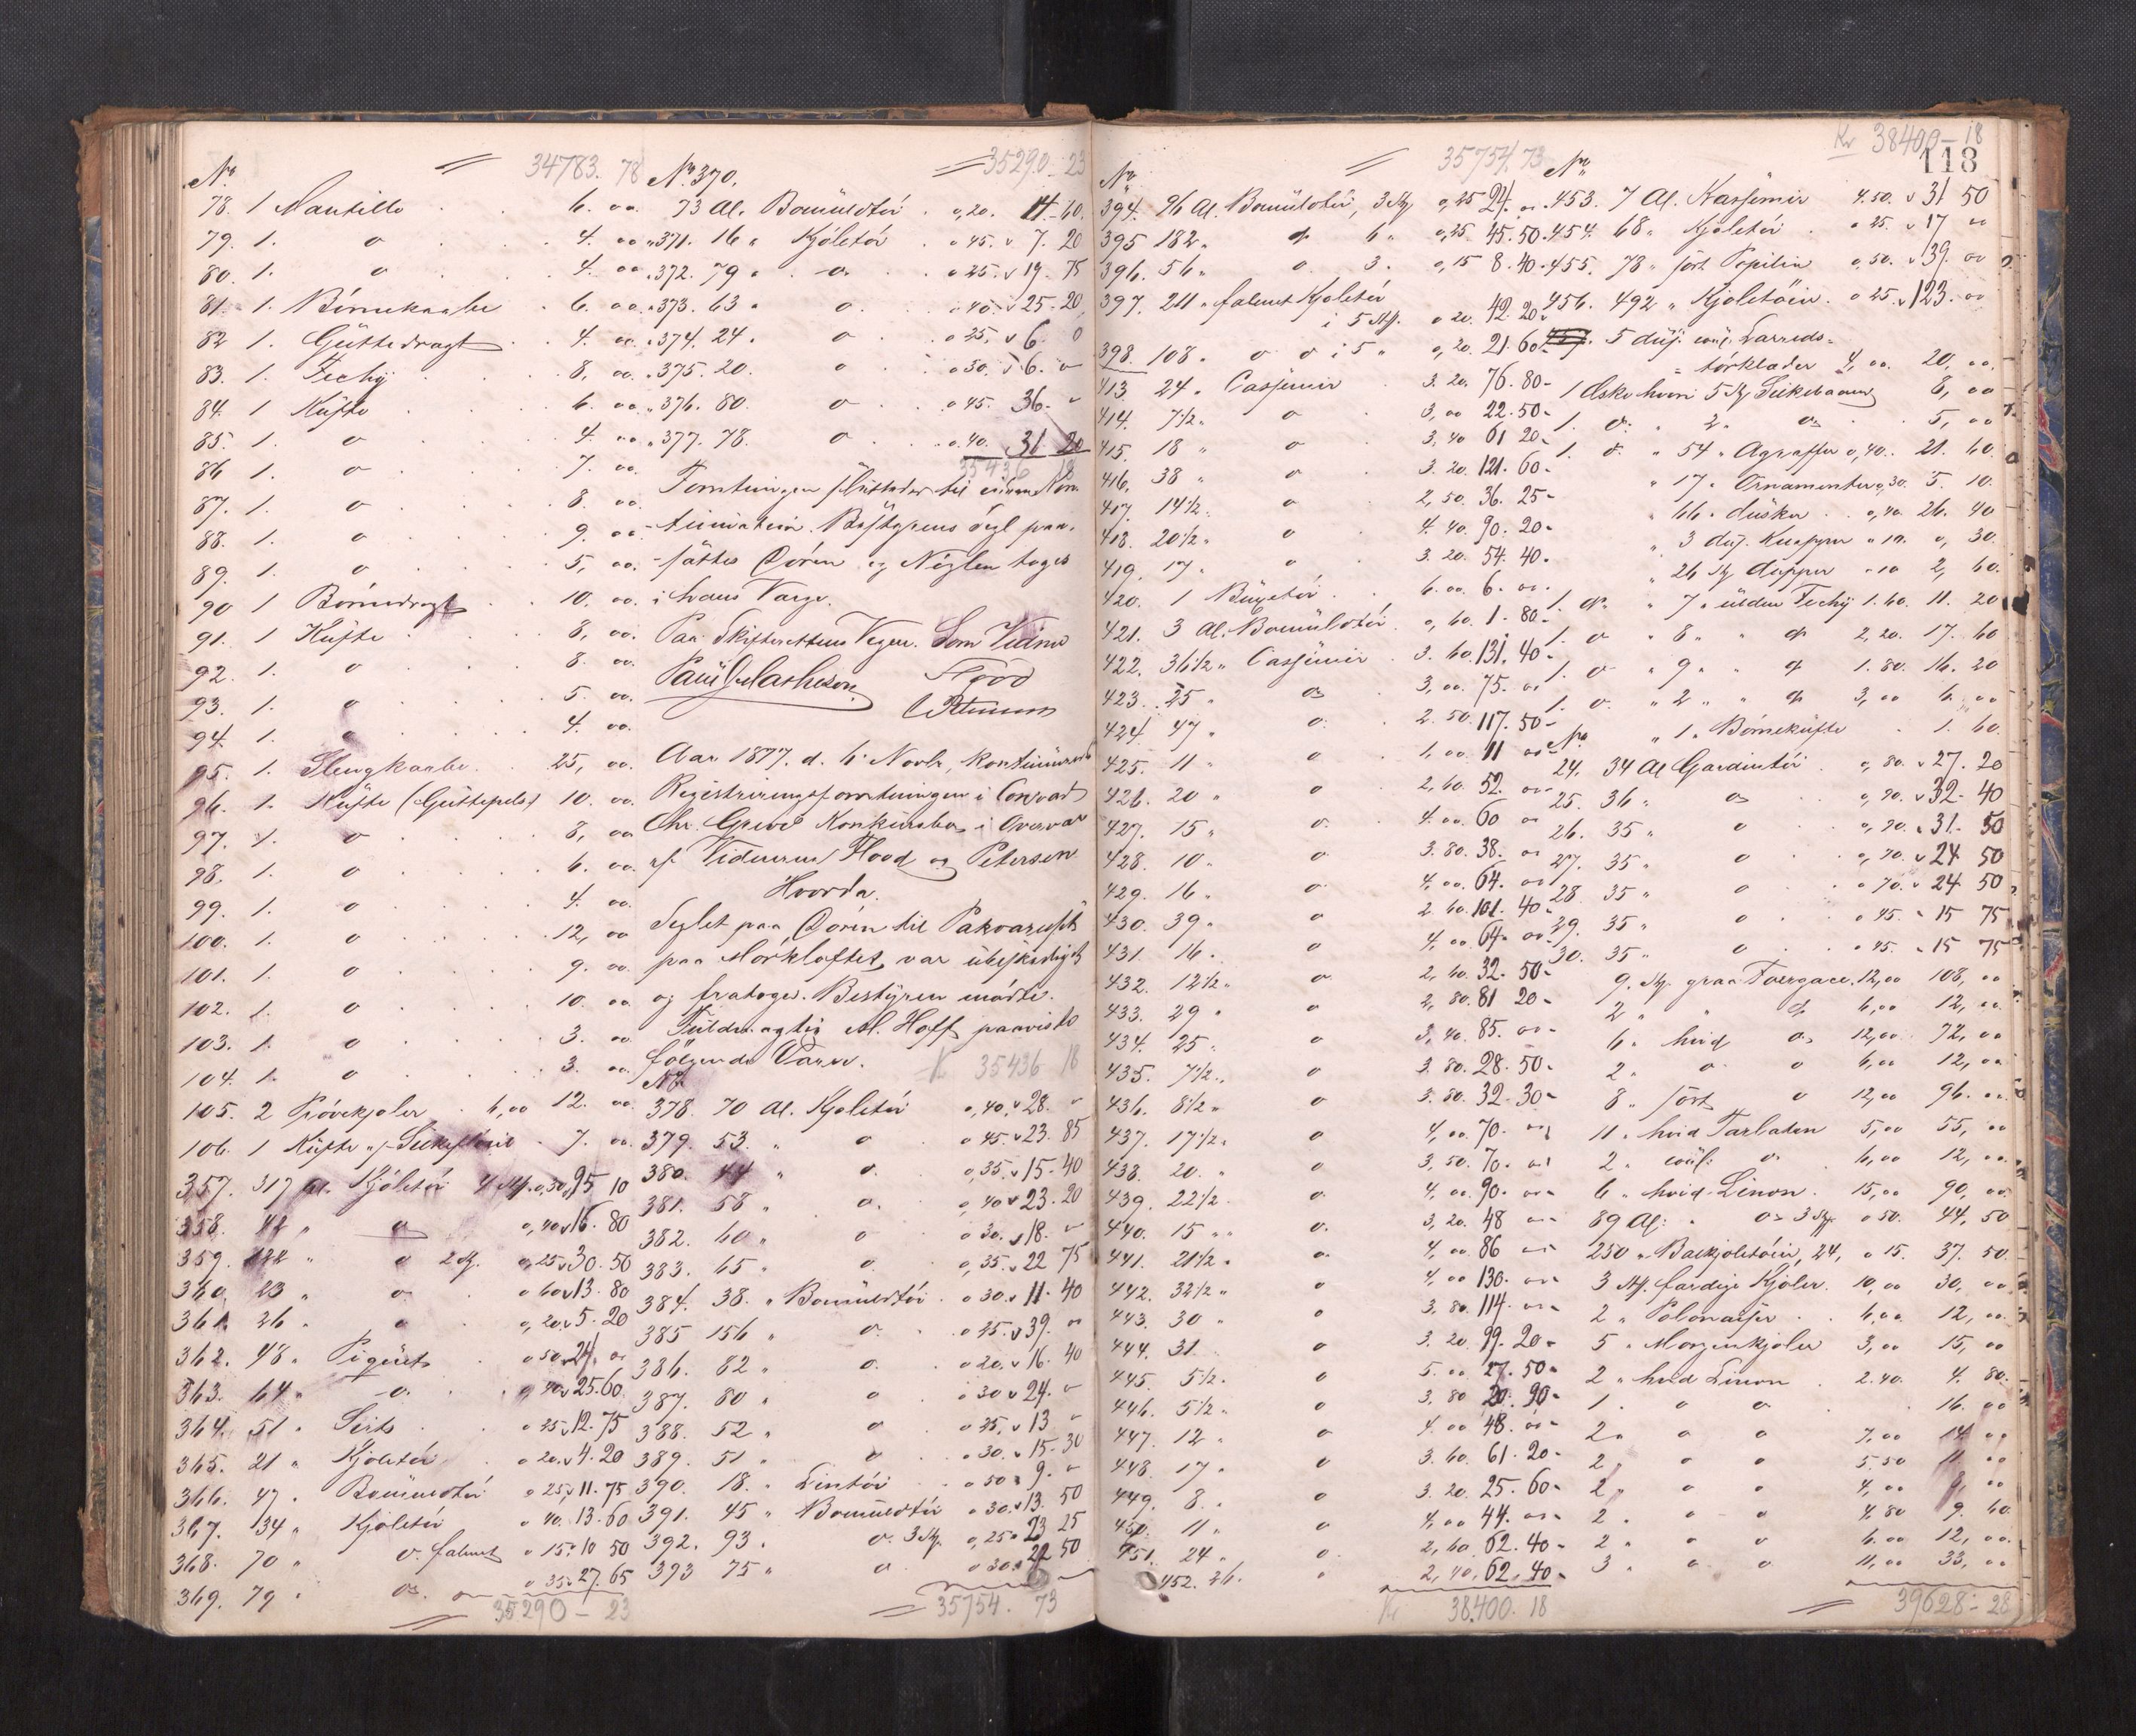 34783. 78
No
78. 1 Mantille . . 6. oo.
79. 1. o . . 4. oo
80. 1. o . . 4. oo.
81. 1. Börnekaabe . 6. oo.
82 1. Güttedragt . . 4. oo.
83. 1. Fechÿ . . 8, oo.
84. 1 Küfte . . 6. oo.
85. 1. o . . 4. oo
86 1. o . . 7. oo.
87. 1. o . . 8. oo
88. 1. o . . 9. oo.
89. 1. o . . 5, oo.
90 1 Börnedragt . . 10. oo.
91. 1 Küfte . . 8, oo.
92. 1. o . . 8. oo.
93. 1. o . . 5. oo.
94. 1. o . . 4. oo.
95. 1. Slengkaabe . 25, oo.
96. 1. Küfte (Güttepels) 10. oo.
97. 1. o . . 8, oo
98. 1. o . . 6. oo.
99. 1. o . . 4. oo.
100. 1. o . . 12, oo
101. 1. o . . 9. oo.
102. 1. o . . 10. oo
103. 1. o . . 3. oo
104. 1. o . . 3. oo.
105. 2 Prövekjoler . 6,00 12. oo.
106. 1 Küfte . 7. oo.
357. 317 al. Kjöletöi 4 St. o,30 95 10
358. 42 " o o,40 16. 80
359. 122 " o 2 St. o,25 30. 50
360. 23 " o o 60 13. 80
361. 26 " o o,20 5. 20
362. 48 " Piqüets o 50 24. oo
363. 64 " o. o 40 25.60
364. 51 " Sirts . o 25 12. 75
365. 21 " Kjoletöi . o 20. 4. 20
366. 47 " Bomüldtöi o 25 11. 75
367. 34 " Kjoletöi o 40. 13. 60
368. 70 " o. falmet o 15. 10 50
369. 79 " o. o o 35 27. 65
35290 - 23
35290 - 23
No 370.
73 Al. Bomüldtöi . o,20. 14-60.
371. 16 " Kjöletöi . o 45. 7. 20
372. 79 " o. . o 25. 19. 75
373. 63 " o. . o 40. 25-20
374. 24 " o . o 25. 6. o
375. 20. o . o 30. 6. o
376. 80. o . o 45. 36. o
377. 78. o . o 40. 31. 20
35436 18
Forretningen slüttedes til videre Kon
tinuation. Bestyrens Segl paa-
sattes Dören og Nöglen toges
i hans Varge.
Paa Skifterettens Vegne. Som Vidne
Aar 1877. d. 6 Novbr, kontinüeredes
Registreringsforretningen i Conrad
Chr. Greves Konkursbo i Overvær
af Vidnerne Hood og Petersen
Hvorda.
Seglet paa Dören til Pakværelset
paa Mörkloftet var übeskadiget
og fratoges. Bestyren mödte.
Füldmægtig M. Hoff paaviste
fölgende Varer. Kr 35436 18
No
378. 70 Al. Kjoletöi o,40. 28. o
379. 53. " o o 45. 23. 85
380. 44 " o. o,35. 15. 40
381. 58 " o. o,40 23. 20
382. 60 " o o 30. 18. o
383. 65 " o. o,35. 22 75
384. 38. " Bomüldtöi . o 30. 11. 40
385 156 " o. . o 25. 39. oo
386. 82 " o. . o 20. 16. 40
387. 80 " o o 30 24. o
388. 52 " o o 25. 13 o
389. 51 " o . o 30. 15-30
390. 18. " Lintöi . o 50 9. o
391. 45 " Bomüldtöi o 30. 13. 50
392. 93. o. 3 St. o,25 23 25
393 75 " o o 30 22 50
35754. 73
35754. 73
No
394. 96 Al. Bomüldtöi, 3 St o,25 24. oo.
395 182 " o 6 " o,25 45. 50.
396. 56 " o. 3. o,15 8. 40.
397. 211 " falmet Kjoletöi
i 5 St. o 20. 42. 20.
398. 108 " o o i 5 " o,20. 21. 60.
413. 24 " Casjemir . 3. 20. 76. 80-
414. 7 1/2 " o 3, oo 22. 50-
415. 18 " o 3. 40 61 20-
416. 38 " o 3. 20. 121. 60-
417. 14 1/2 " o 2, 50. 36. 25-
418. 20 1/2 " o 4. 40. 90. 20-
419. 17 " o 3. 20. 54. 40.
420. 1 . 6. oo 6. oo.
421. 3 Al. Bomüldtöi o, 60. 1. 80-
422. 36 1/2 " Casjemir . 3. 60. 131. 40-
423. 25 " o 3, oo. 75. oo
424. 47 " o. 2. 50. 117. 50-
425. 11 " o 1, oo. 11 oo-
426. 20 " o 2, 60. 52. oo-
427. 15 " o. 4. oo. 60 oo
428. 10 " o 3. 80. 38. oo
429. 16 " o. 4, oo. 64. oo
430. 39 " o 2. 60. 101. 40-
431. 16 " o 4, oo. 64. oo
432. 12 1/2 " o. 2, 60. 32. 50-
433. 29 " o 2, 80. 81 20-
434. 25 " o 3, 40. 85. oo-
435. 7 1/2 " o 3. 80. 28. 50-
436. 8 1/2 " o 3. 80. 32. 30-
437. 17 1/2 " o 4, oo. 70. oo
438. 20. " o 3, 50. 70. oo
439. 22 1/2 o. 4, oo. 90. oo-
440. 15 " o. 3, 20. 48 oo-
441. 21 1/2 " o 4, oo. 86 oo
442. 32 1/2 " o 4, oo 130. oo-
443. 30 " o 3. 80. 114. oo-
444. 31. o 3. 20. 99. 20-
445. 5 1/2 " o 5. oo. 27. 50-
446. 5 1/2 " o 3, 80 20. 90-
447. 12 " o 4. oo 48. oo-
448. 17 " o 3. 60. 61. 20-
449. 8. " o 3. 20. 25. 60-
450. 11 " o 4, oo 44. oo-
451. 24 " o. 2, 60. 62. 40-
452. 26. o 2, 40. 62. 40-
Kr 38.400. 18
Kr 38400-18
118
No
453. 7 Al. Kasjemir 4. 50. 31 50
454. 68 " Kjoletöi . o 25. 17 oo
455. 78 " sort Popilin o, 50. 39. oo
456. 492 " Kjoletöier. o 25. 123. oo
5 düs. coul. Lærreds-
törklæder 4, oo. 20, oo.
1 Æske hvori 5 St Silkebaand 8, oo
1. o. " 2 " o . . 5, oo
1. o. " 54 " Agraffer o, 40. 21. 60.
" 17 " Ornamenter o, 30. 5. 10.
" 66 " düsker . . o, 40. 26. 40
" 3 düs. Knapper " 10. o, 30.
" 26 St dupper - 10 2, 60.
1. o. " 7 " ülden Fechÿ 1. 60. 11. 20
1. o " 8 " " o 2, 20. 17. 60
1. o " 9 " " o 1. 80. 16. 20
1. o. " 2 " " o 3, oo 6. oo
No " 1 " Börneküfte . 1. 60.
24. 34 Al Gardintöi . o, 80. 27. 20
25. 36 " o . o, 90. 32. 40
26. 35 " o . o, 90. 31. 50
27. 35 " o . o, 70. 24 50
28. 35 " o . o 70. 24 50
29. 35 " o . o 45. 15 75
30. 35 " o . o 45. 15 75
9. St. graa 12,00 108, oo
2 " " o 6,00 12, oo.
6 " hvid o 12,00 72, oo
2 " o o 6,00 12, oo.
8 " sort o 12,00 96. oo.
11 " hvid Tarlatan 5,00 55, oo
2 " coul. o. 6,00 12, oo.
6 " hvid Linon. 15,00 90, oo.
89 Al. " o 3 St. o 50. 44, 50
250 " Balkjoletöier, 24, o 15. 37. 50.
3 St. færdige Kjoler. 10,00 30, oo
2 " Polonaiser . . 6,00. 12, oo.
5 " Morgenkjoler 3,00 15, oo
2 " hvid Linon . 2. 40. 4. 80.
1 . o o . 16. oo
2 " o o 7,00 14 oo
2 " o o 5. 50 11 oo
2 " o o 4, oo 8, oo
2 . o o 4. 80 9. 60
2 " o o 6. oo 12, oo.
3 " o o 11, oo 33, oo
39628-28